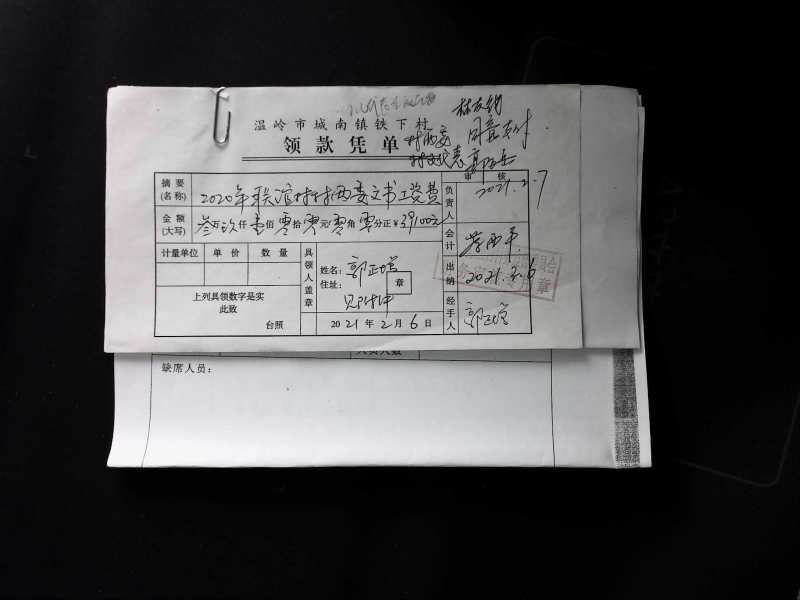 温岭市城南镇铁下村
同意支付
领款凭单
村两委
审核
2021.2.7
摘要
(名称)
2020年联谊村村两委文书工资费
负责人
金额
(大写)
叁万玖仟壹佰零拾零元零角零分正¥39100元
会计
计量单位 单价 数量
具领人盖章
姓名:郭正
住址:
见附件
章
出纳
2021.2.6
上列具领数字是实
此致
台照
2021年2月6日
经手人
郭正
人员人数
缺席人员: